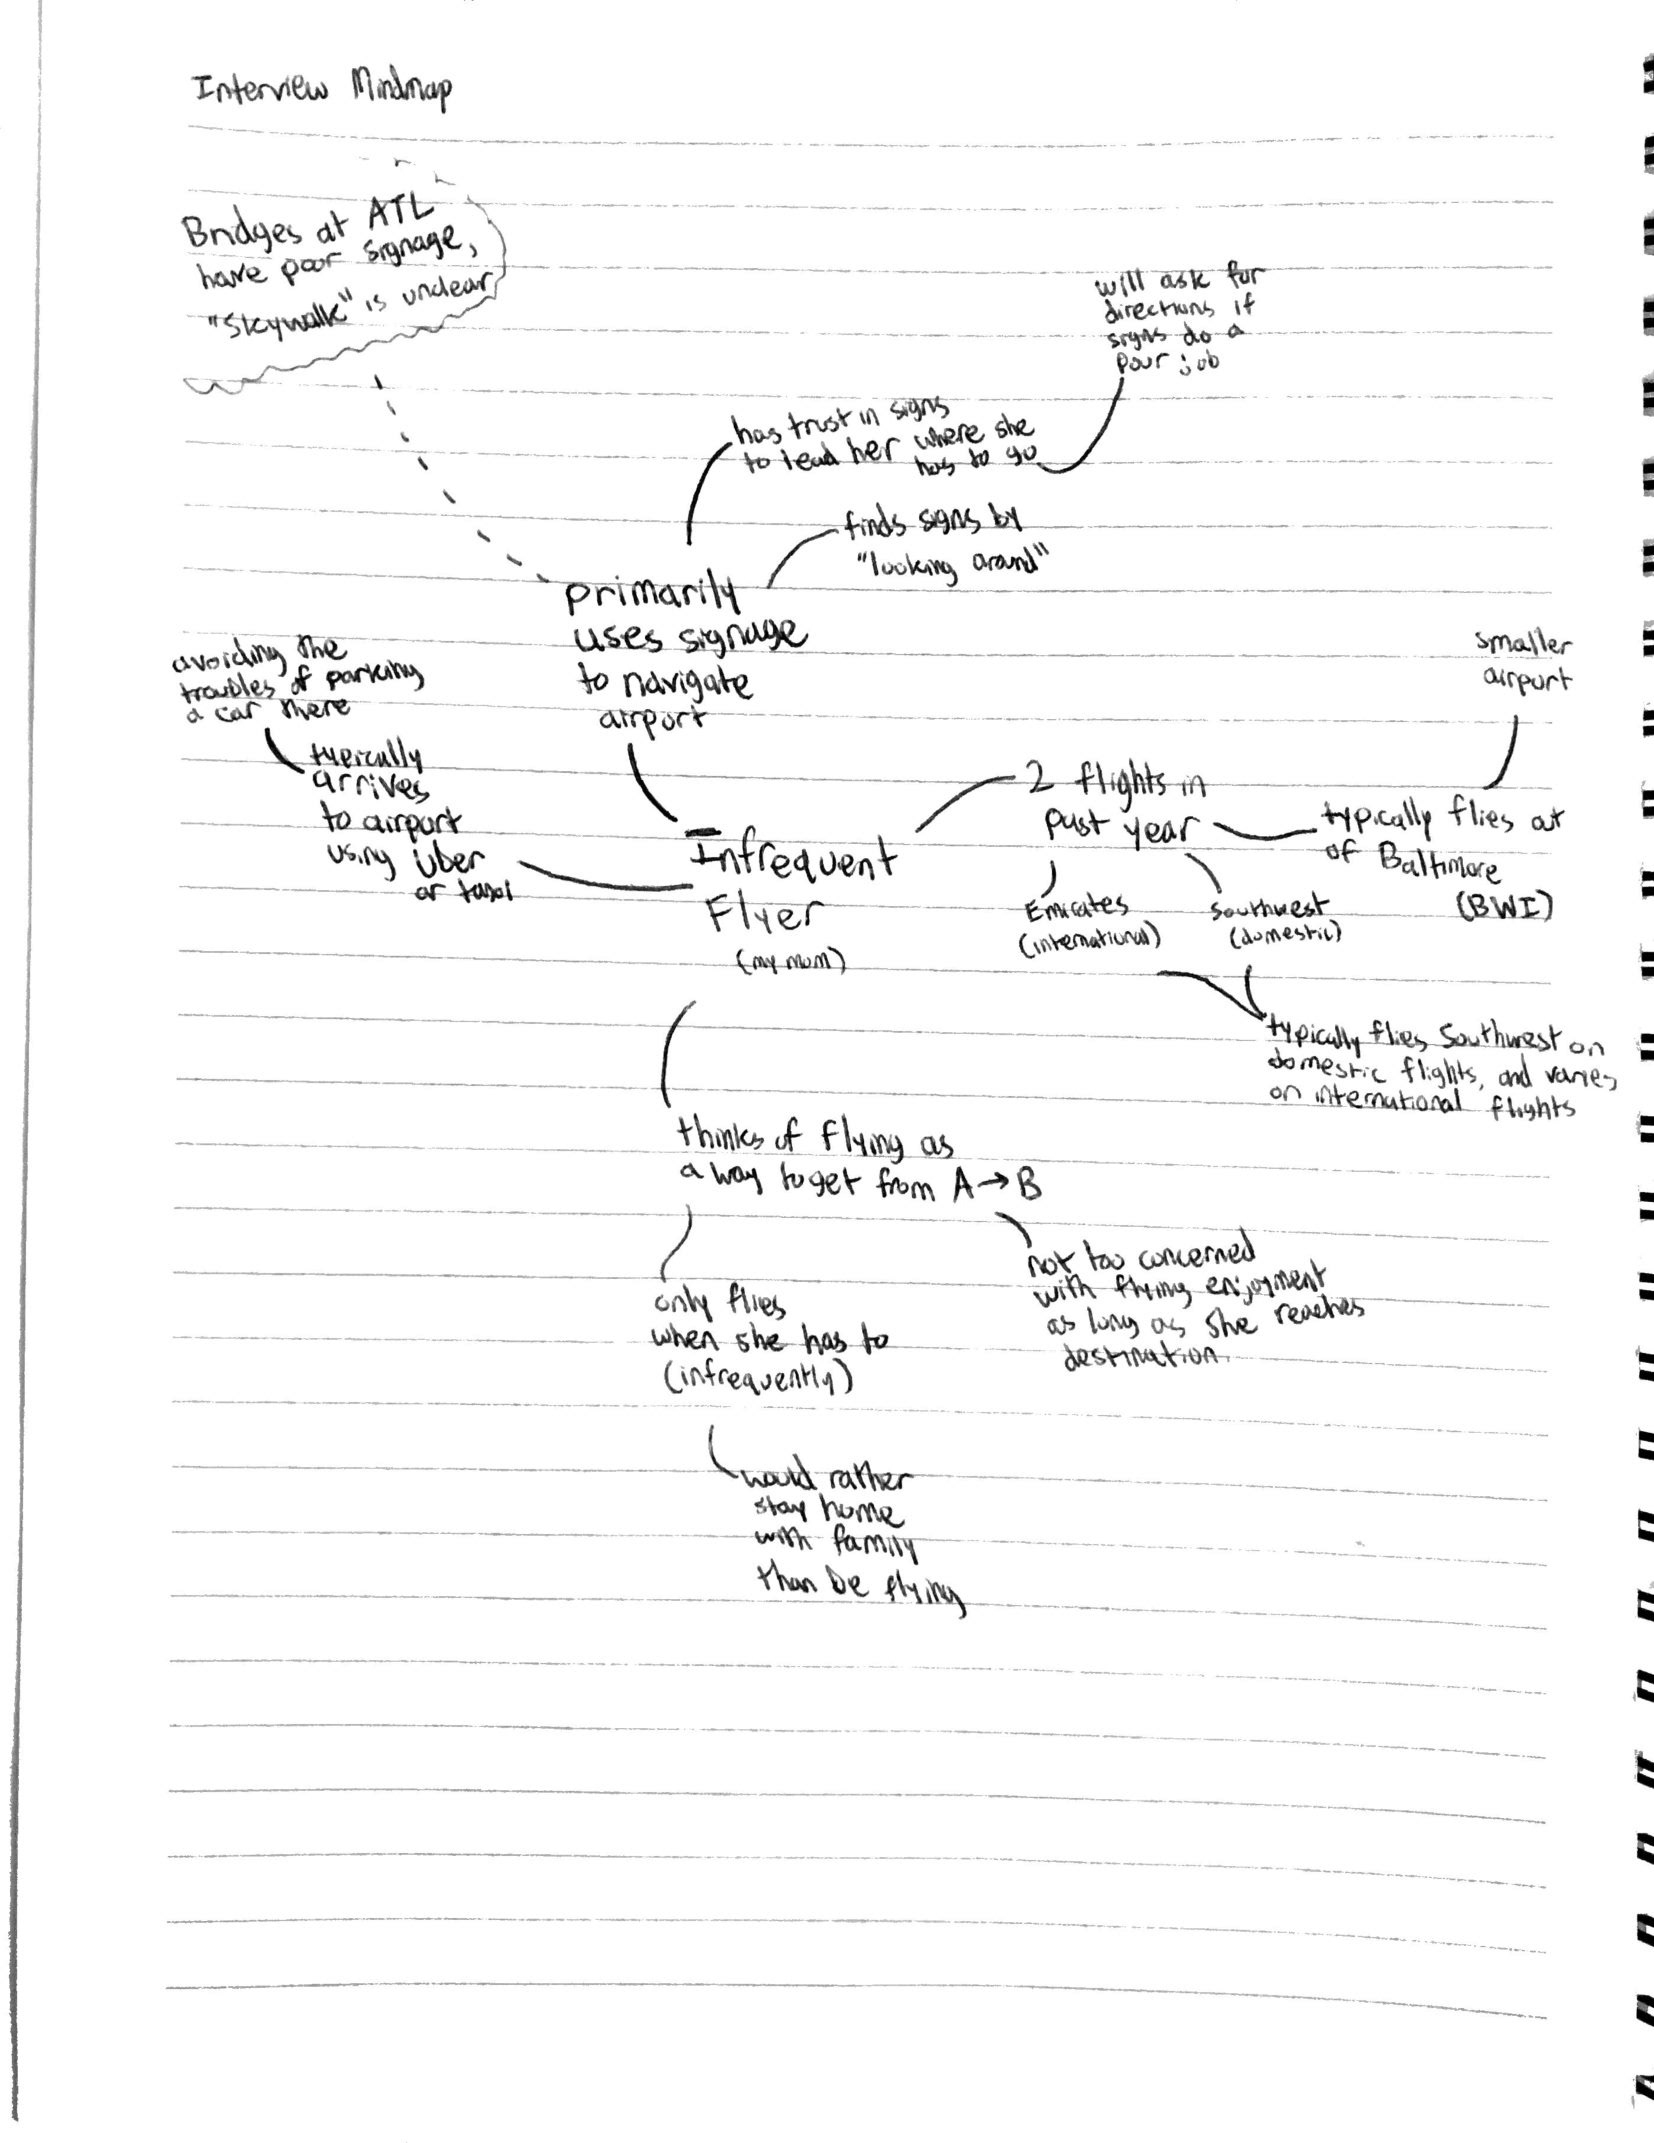 Interview Mindmap
Bridges at ATL
have poor signage,
"Skywalk" is unclear
will ask for
directions if
signs do a
poor job
has trust in signs
to lead her where she
has to go
finds signs by
"looking around"
primarily
uses signage
to navigate
airport
avoiding the
troubles of parking
a car there
typically
arrives
to airport
using Uber
or taxi
smaller
airport
2 flights in
past year
typically flies out
of Baltimore
(BWI)
Infrequent
Flyer
(my mum)
Emirates
(international)
Southwest
(domestic)
typically flies Southwest on
domestic flights, and varies
on international flights
thinks of flying as
a way to get from A→B
not too concerned
with flying enjoyment
as long as she reaches
destination.
only flies
when she has to
(infrequently)
would rather
stay home
with family
than be flying